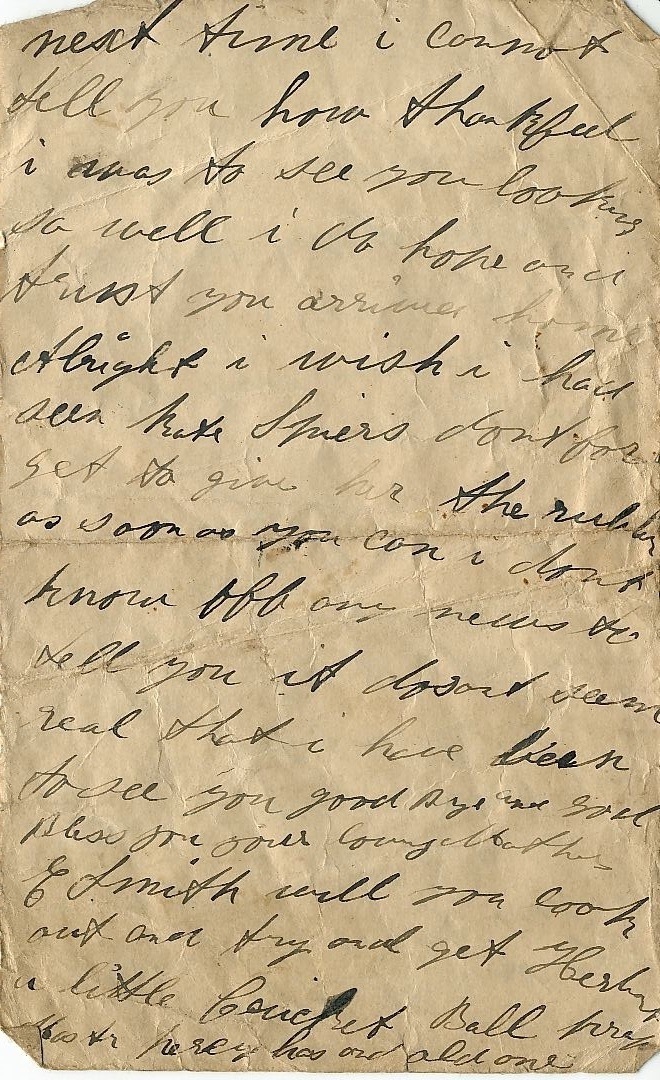 next time i connot
tell you how thankful
i was to see you looking
so well i do hope and
trust you arrived home
Alright i wish i had
seen kate Spiers dont for
get to give her the rubber
as soon as you can i dont
know off any news to
tell you it dosant seem
real that i have been
to see you good Bye and God
Bless you your loving Mother
E Smith will you look
out and try and get Herbert
a little Cricket Ball
percy has and old one